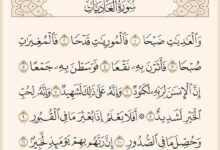 سُورَةُ العَادِيَاتِ
وَالْعَادِيَاتِ ضَبْحًا ۝١ فَالْمُورِيَاتِ قَدْحًا ۝٢ فَالْمُغِيرَاتِ
صُبْحًا ۝٣ فَأَثَرْنَ بِهِ نَقْعًا ۝٤ فَوَسَطْنَ بِهِ جَمْعًا ۝٥
إِنَّ الْإِنسَانَ لِرَبِّهِ لَكَنُودٌ ۝٦ وَإِنَّهُ عَلَىٰ ذَٰلِكَ لَشَهِيدٌ ۝٧ وَإِنَّهُ لِحُبِّ
الْخَيْرِ لَشَدِيدٌ ۝٨ أَفَلَا يَعْلَمُ إِذَا بُعْثِرَ مَا فِي الْقُبُورِ ۝٩
وَحُصِّلَ مَا فِي الصُّدُورِ ۝١٠ إِنَّ رَبَّهُم بِهِمْ يَوْمَئِذٍ لَّخَبِيرٌ ۝١١